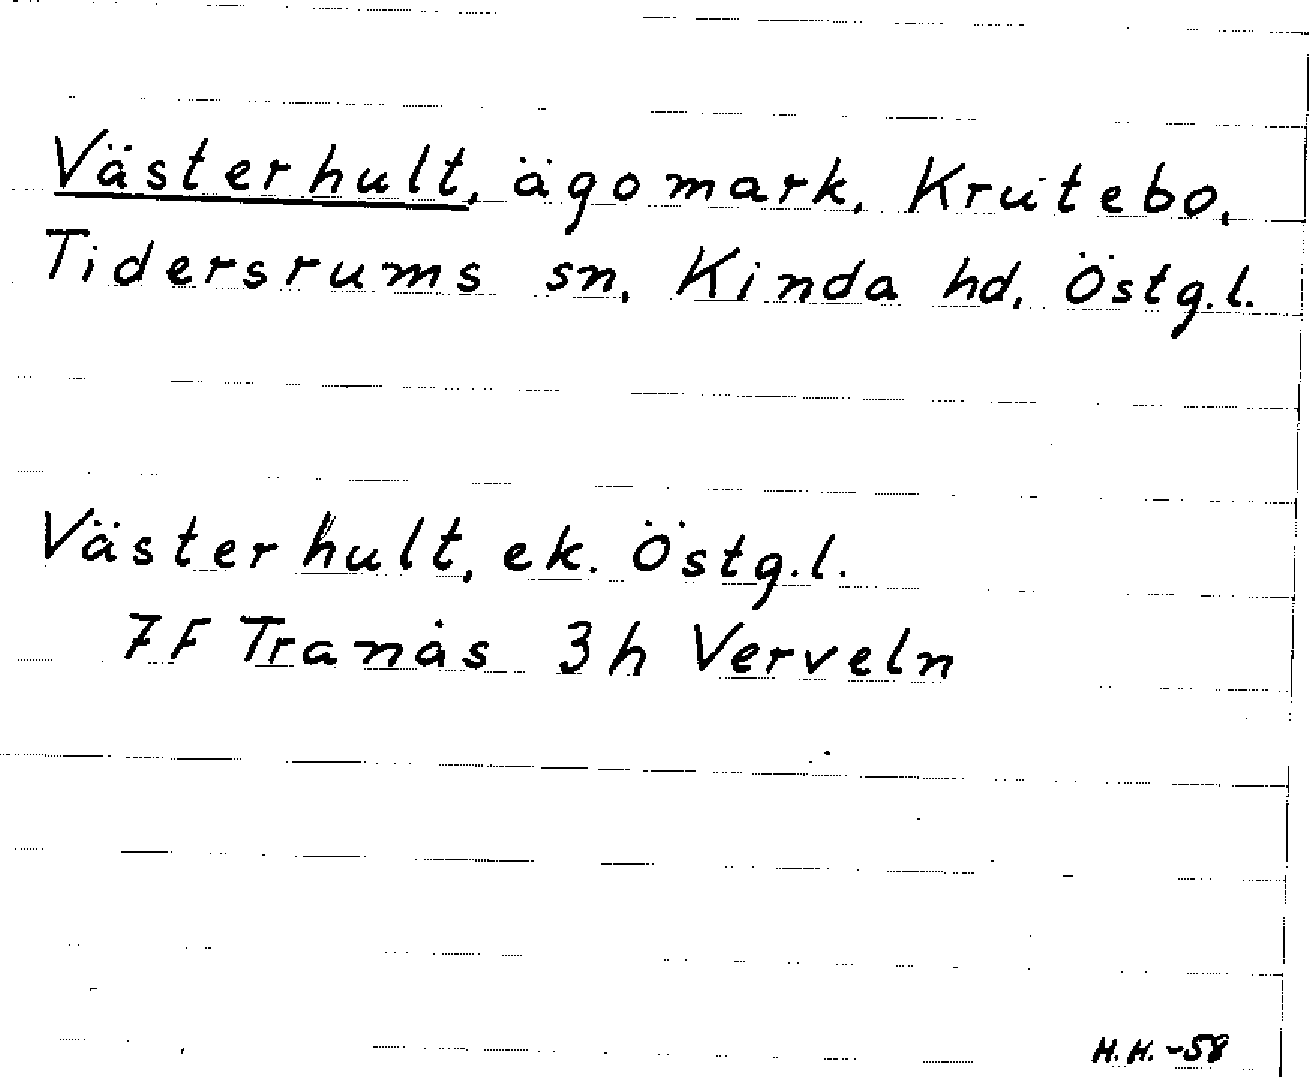 Västerhult, ägomark, Krutebo,
Tidersrums sn, Kinda hd, Östg.l.
Västerhult, ek. Östg.l.
7F Tranås 3h Verveln
H.H.-58